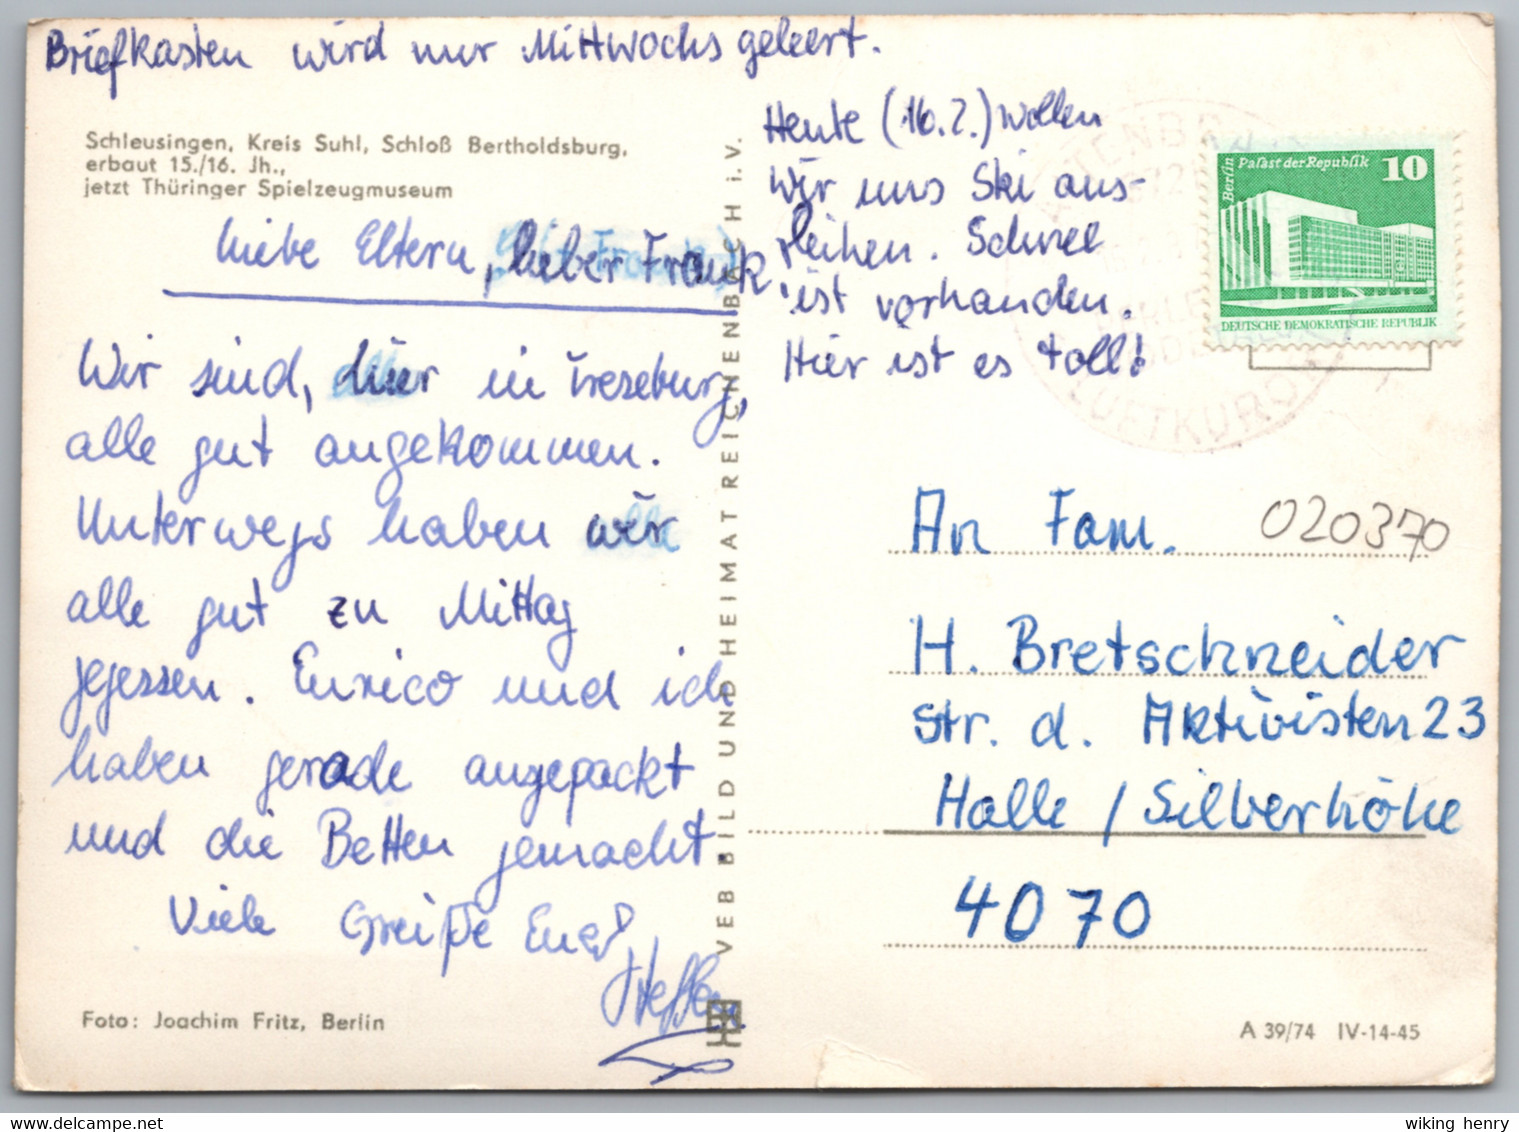 Briefkasten wird nur Mittwochs geleert.
Schleusingen, Kreis Suhl, Schloß Bertholdsburg,
erbaut 15./16. Jh.,
jetzt Thüringer Spielzeugmuseum
Liebe Eltern, lieber Frank,
Wir sind, hier in Treseburg,
alle gut angekommen.
Unterwegs haben wir
alle gut zu Mittag
gegessen. Enrico und ich
haben gerade angepackt
und die Betten gemacht.
Viele Grüße Euer
Steffen
Foto: Joachim Fritz, Berlin
VEB BILD UND HEIMAT REICHENBACH i. V.
Heute (16.2.) wollen
wir uns Ski aus-
leihen. Schnee
ist vorhanden.
Hier ist es toll!
Berlin Palast der Republik 10
DEUTSCHE DEMOKRATISCHE REPUBLIK
LUFTKURORT
An Fam. 020370
H. Bretschneider
Str. d. Aktivisten 23
Halle / Silberhöhe
4070
A 39/74 IV-14-45
www.delcampe.net
wiking henry